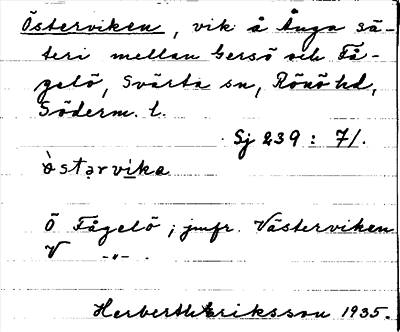 Österviken, vik å Ånga sä-
teri mellan Gersö och Få-
gelö, Svärta sn, Rönö hd,
Söderm. l.
Sj 239 : 71.
östarvika
Ö Fågelö; jmfr. Västerviken
V -"-
Herbert Eriksson 1935.